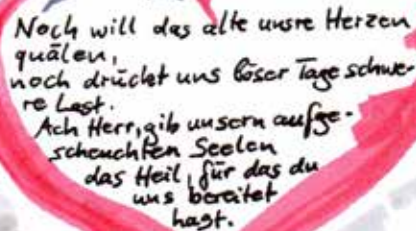 Noch will das alte unsre Herzen
quälen,
noch drücket uns böser Tage schwe-
re Last.
Ach Herr, gib unsern aufge-
scheuchten Seelen
das Heil, für das du
uns bereitet
hast.